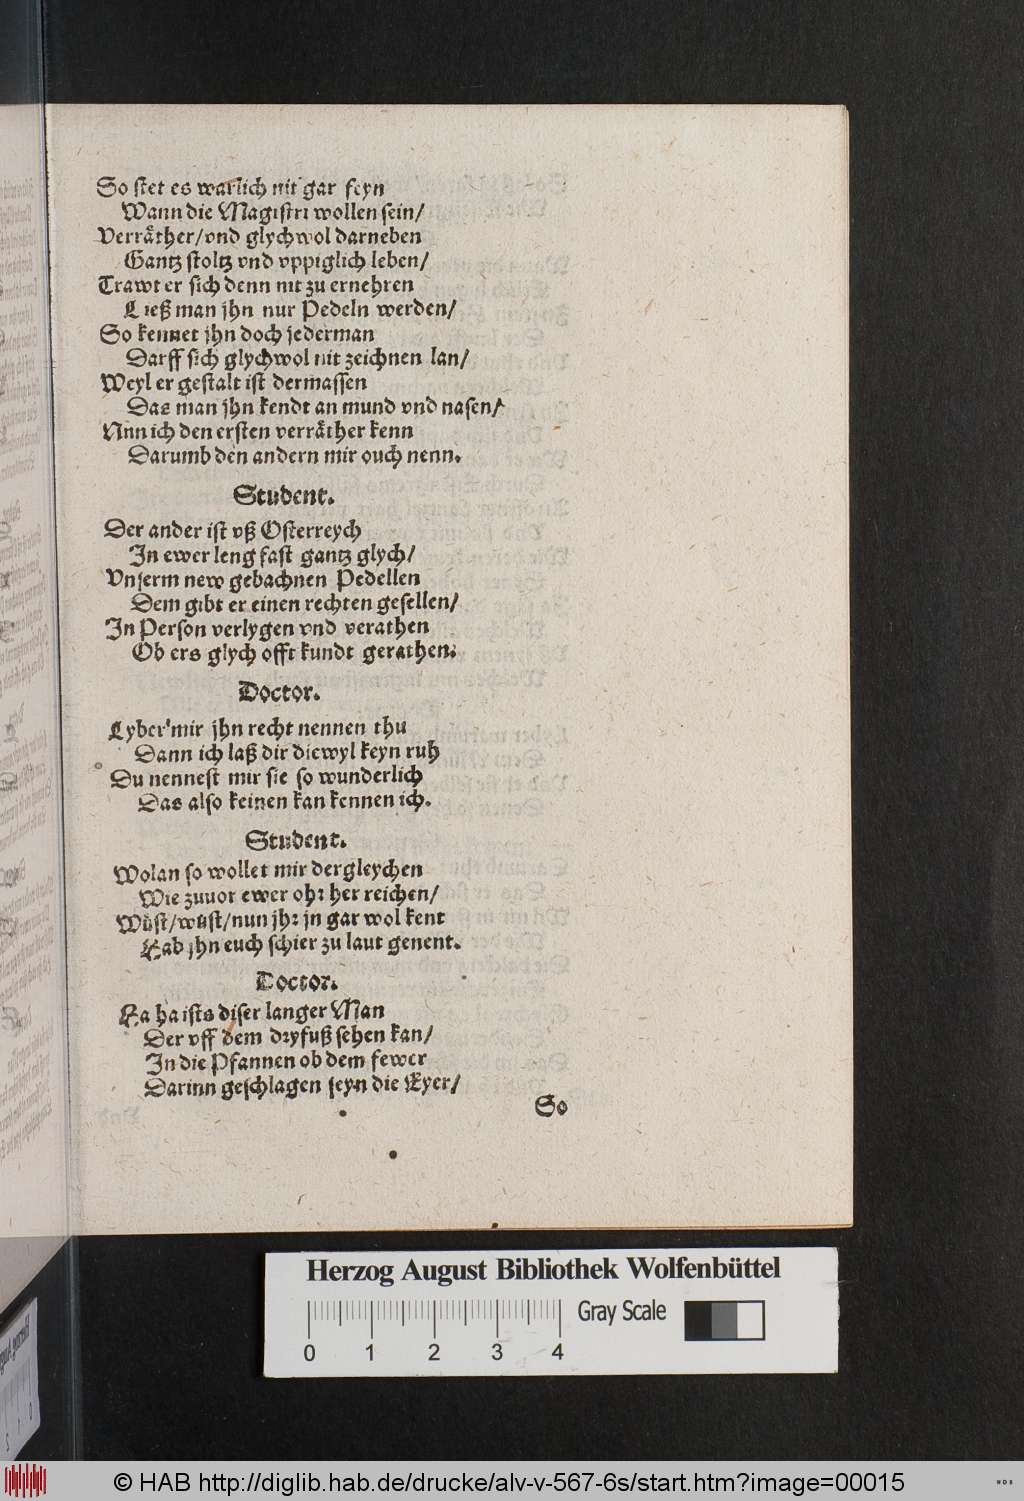 So stet es warlich nit gar feyn
Wann die Magistri wollen sein/
Verräther/vnd glychwol darneben
Gantz stoltz vnd vppiglich leben/
Trawt er sich denn nit zu ernehren
Ließ man jhn nur Pedeln werden/
So kennet jhn doch jederman
Darff sich glychwol nit zeichnen lan/
Weyl er gestalt ist dermassen
Das man jhn kendt an mund vnd nasen/
Nnn ich den ersten verräther kenn
Darumb den andern mir ouch nenn.
Student.
Der ander ist vß Osterreych
In ewer leng fast gantz glych/
Vnserm new gebachnen Pedellen
Dem gibt er einen rechten gesellen/
In Person verlygen vnd verathen
Ob ers glych offt kundt gerathen.
Doctor.
Lyber mir jhn recht nennen thu
Dann ich laß dir diewyl keyn ruh
Du nennest mir sie so wunderlich
Das also keinen kan kennen ich.
Student.
Wolan so wollet mir dergleychen
Wie zuuor ewer ohr her reichen/
Wüst/wüst/nun jhr jn gar wol kent
Hab jhn euch schier zu laut genent.
Doctor.
Ha ha ists diser langer Man
Der vff dem dryfuß sehen kan/
In die Pfannen ob dem fewer
Darinn geschlagen seyn die Eyer/
So
Herzog August Bibliothek Wolfenbüttel
Gray Scale
0 1 2 3 4
© HAB http://diglib.hab.de/drucke/alv-v-567-6s/start.htm?image=00015